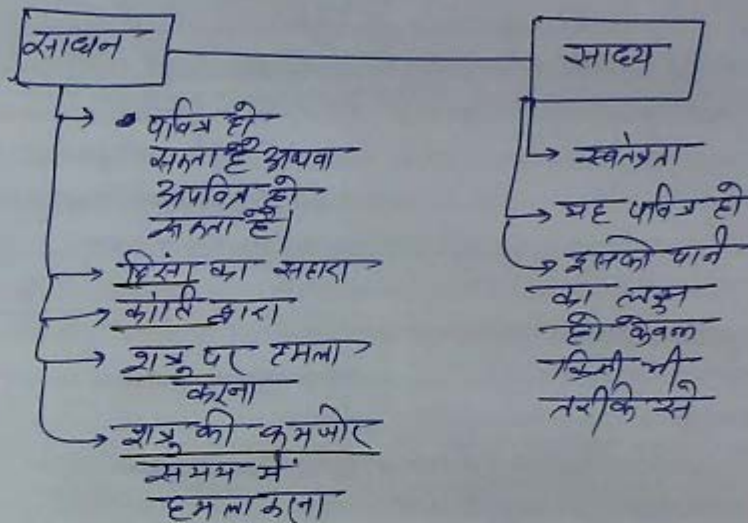 साधन
साध्य
पवित्र हो
सकता है अथवा
अपवित्र हो
सकता है।
हिंसा का सहारा
क्रांति द्वारा
शत्रु पर हमला
करना
शत्रु की कमजोर
समय में
हमला करना
स्वतंत्रता
यह पवित्र हो
इसको पाने
का लक्ष्य
हो केवल
किसी भी
तरीके से